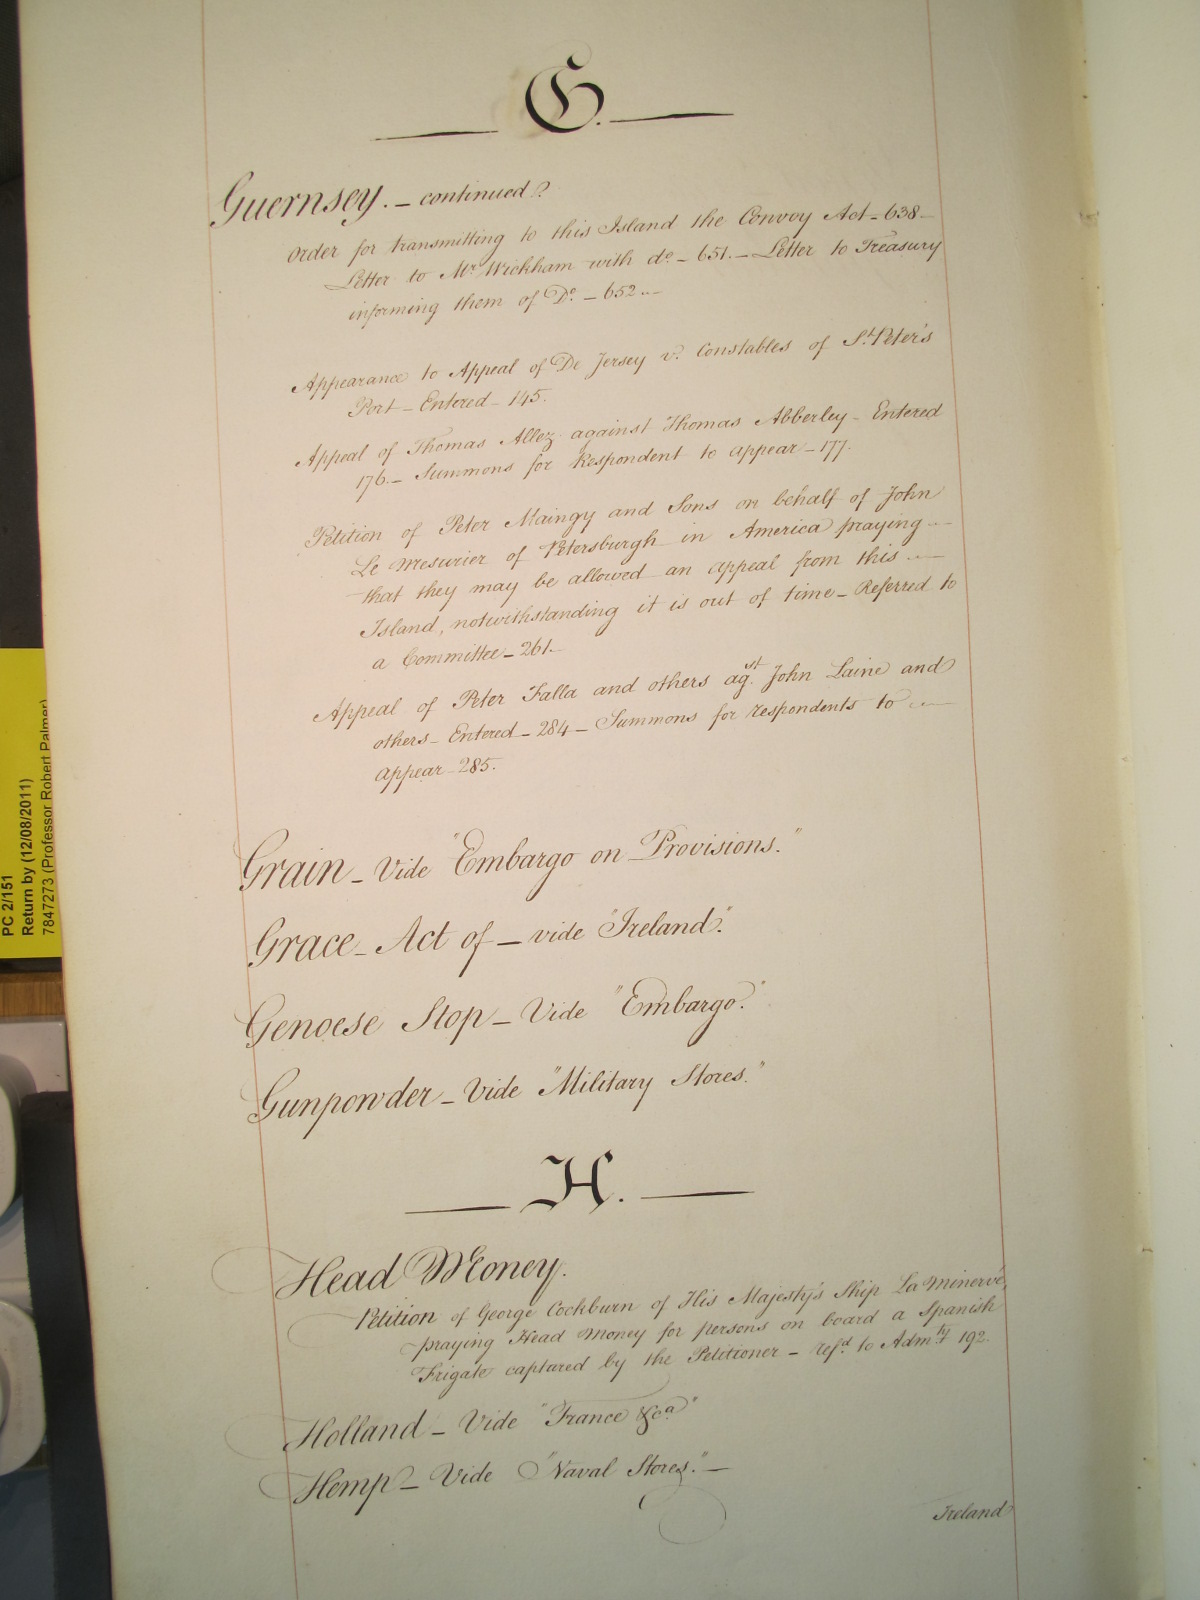 G.
Guernsey. – continued.
Order for transmitting to this Island the Convoy Act – 638 –
Letter to Mr. Wickham with do – 651. – Letter to Treasury
informing them of Do. – 652 –
Appearance to Appeal of De Jersey v. Constables of St. Peter's
Port – Entered – 145.
Appeal of Thomas Allez against Thomas Abberley – Entered
176. – Summons for Respondent to appear – 177.
Petition of Peter Maingy and Sons on behalf of John
Le Mesurier of Petersburgh in America praying
that they may be allowed an appeal from this
Island, notwithstanding it is out of time – Referred to
a Committee – 261. –
Appeal of Peter Falla and others agst. John Laine and
others – Entered – 284 – Summons for respondents to
appear – 285.
Grain – Vide "Embargo on Provisions."
Grace – Act of – vide "Ireland."
Genoese Stop – Vide "Embargo."
Gunpowder – Vide "Military Stores."
H.
Head Money.
Petition of George Cockburn of His Majesty's Ship La Minerve,
praying Head Money for persons on board a Spanish
Frigate captured by the Petitioner – refd. to Admty. 192.
Holland – Vide "France &ca"
Hemp – Vide "Naval Stores." –
Ireland
PC 2/151
Return by (12/08/2011)
7847273 (Professor Robert Palmer)